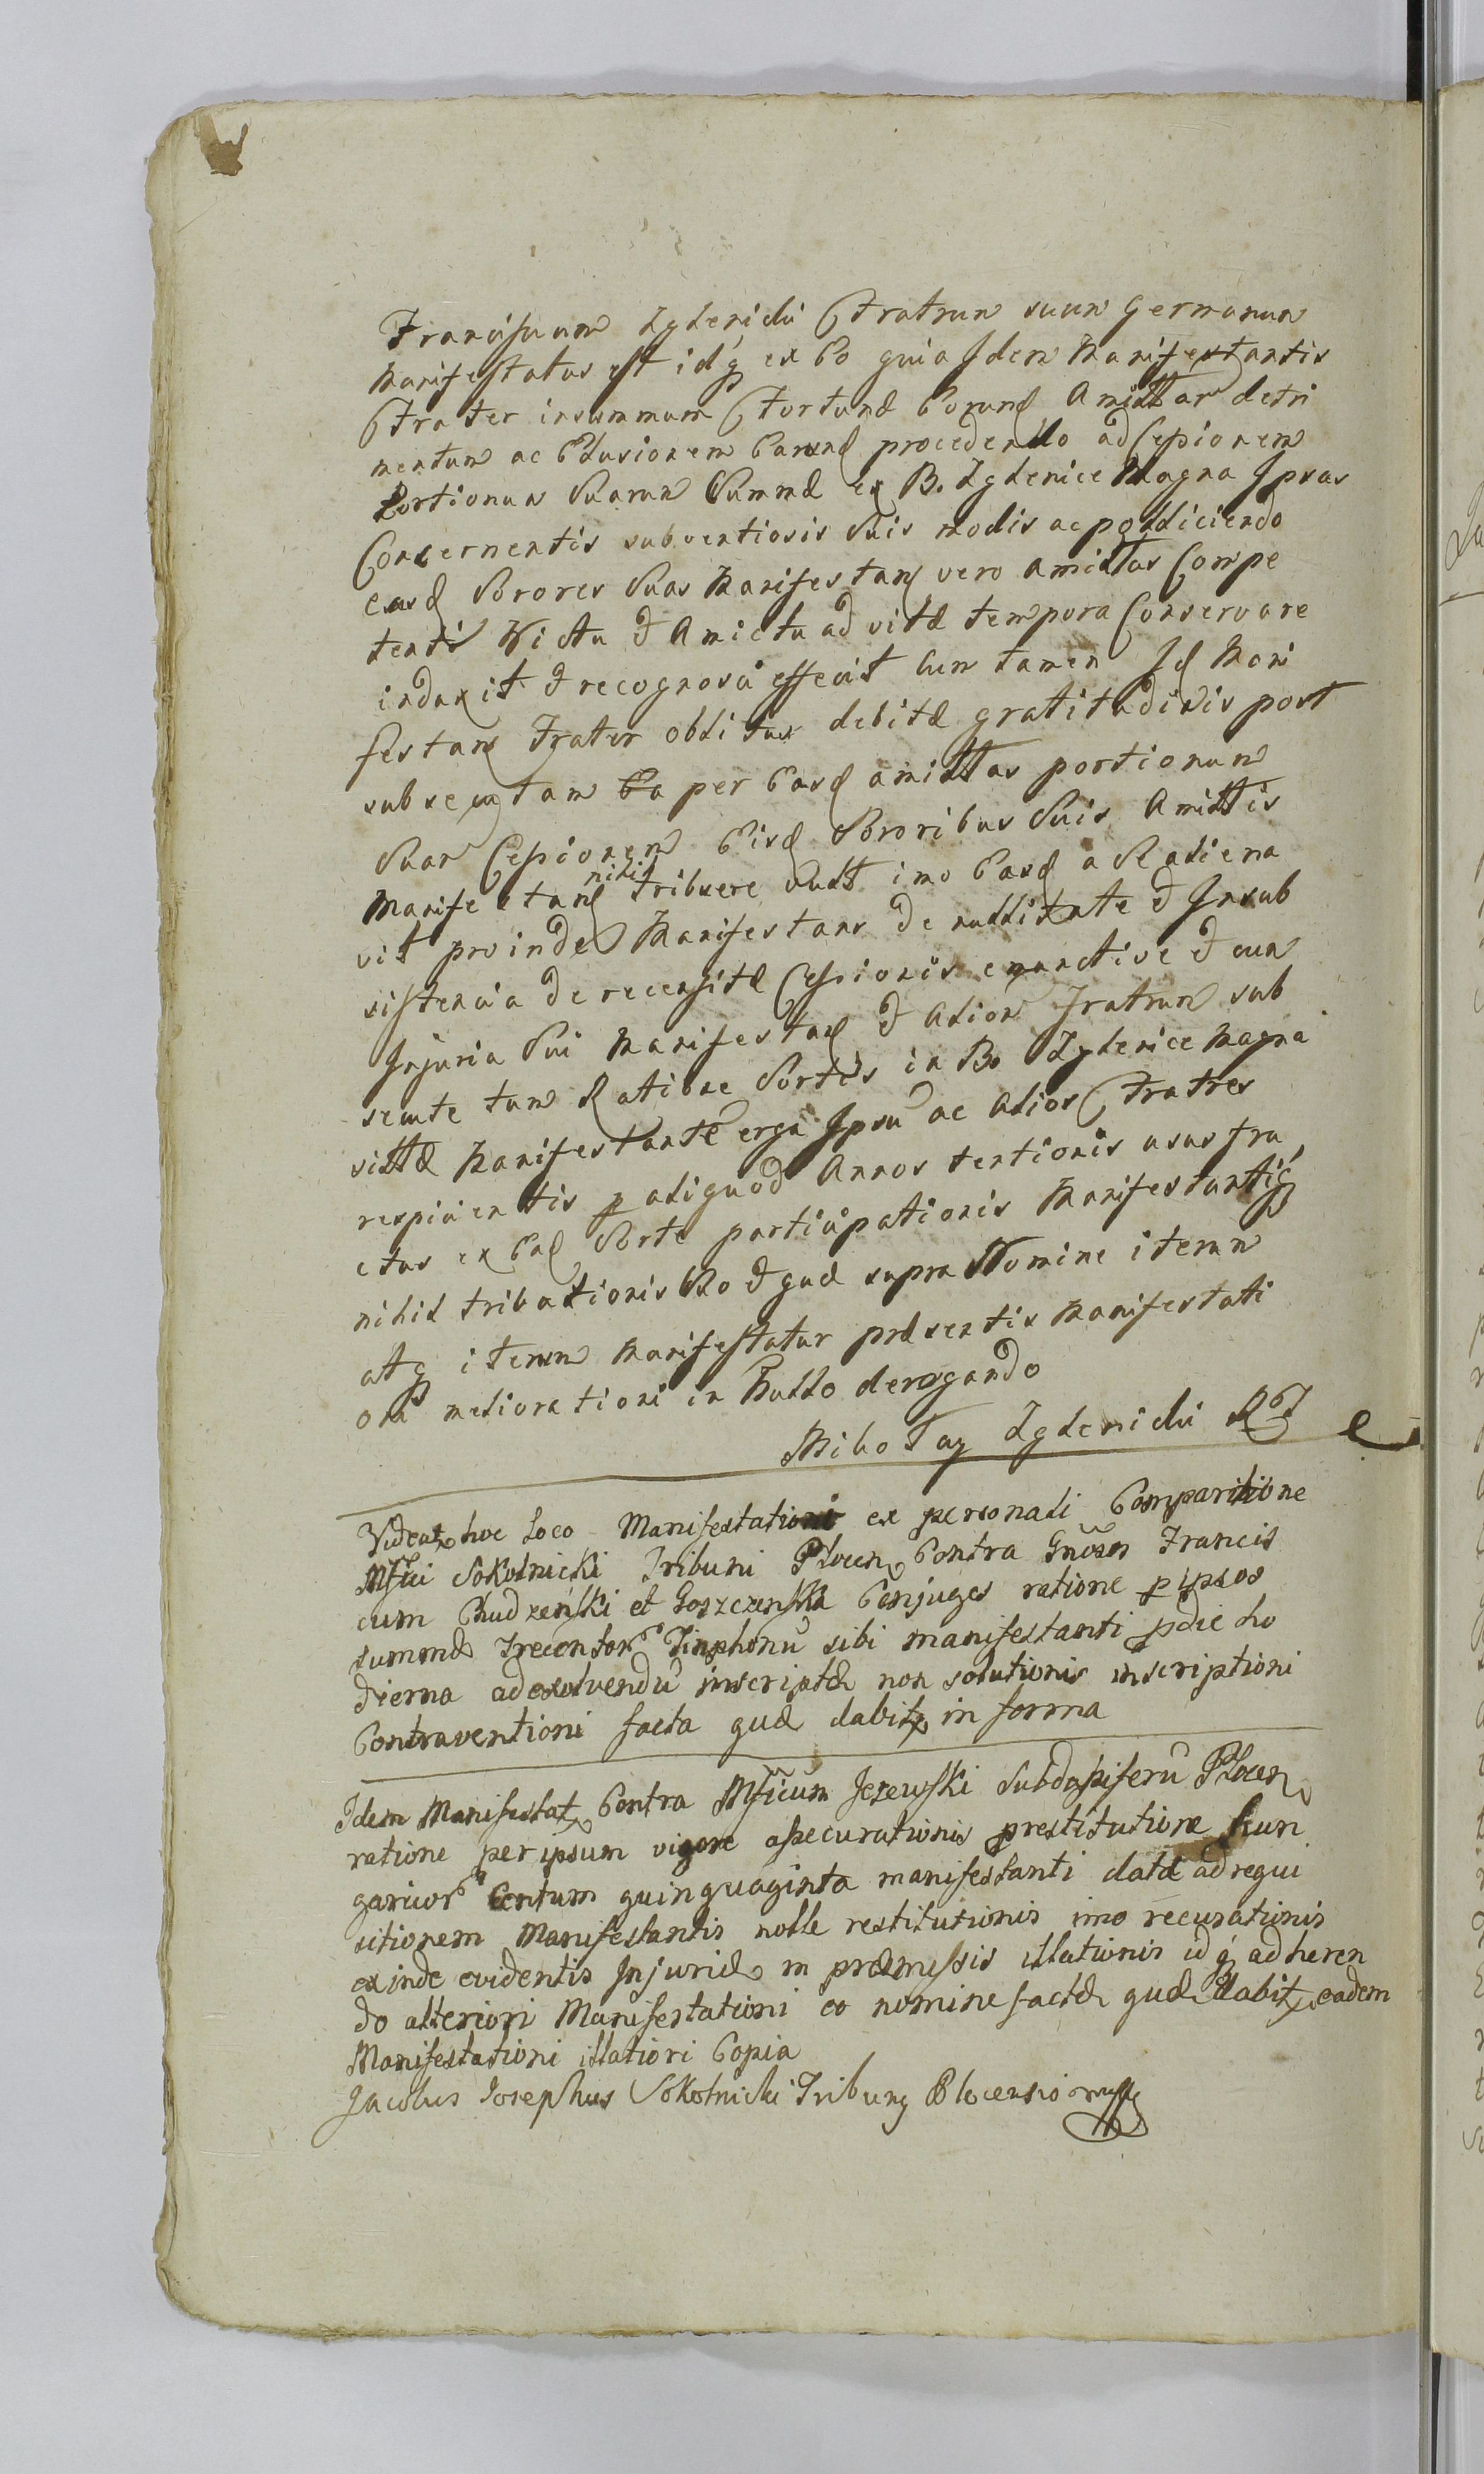 Franciscum Zglenicki Fratrem suum Germanum
Manifestatus est idq ex Eo quia Idem Manifestantis
Frater insummum Fortunæ Earund Amittar detri
mentum ac Elusionem Earund procedendo ad Cessionem
Portionum Suarum Summæ ex B. Zglenice Magna Ipsas
Concernentis subventiosis Suis modis ac polliciendo
easd Sorores Suas Manifestans vero Amittas Compe
tenti Victu & Amictu ad vitæ tempora Conservare
induxit & recognosci effecit cum tamen Id Mani
festans Frater oblitus debitæ gratitudinis post
subsecutam Ea per Easd amittas portionum
Suar Cessionem Eisd Sororibus Suis Amittis
Manifestans nihil tribuere vult imo Easd a Se aliena
vit proinde Manifestans de nullitate & Insub
sistencia de recensitæ Cessionis emanctive & cum
Injuria Sui Manifestans & Alior Fratrum sub
secute tum Ratione Sortis in Bo Zglenice Magna
sittæ Manifestante erga Ipsū ac Alios Fratres
respicientis p aliquod Annos tentionis usus fru
ctus ex Ead Sorte participationis Manifestantiq
nihil tributionis Eo & quæ supra Nomine iterum
atq iterum Manifestatur præsentis Manifestati
oni meliorationi in Nullo derogando
Mikołay Zglenicki
Videatr hoc loco Manifestationi ex personali Comparitione
Mfici Sokolnicki Tribuni Plocen Contra Gnosos Francis
cum Chudzeński et Goszczenska Conjuges ratione p ipsos
summæ Trecentor Tinphonū sibi manifestanti pdie ho
dierna adexolvendū inscriptæ non solutionis inscriptioni
Contraventioni facta quæ dabitr in forma
Idem Manifestatr Contra Mficum Jezewski Subdapiferū Plocen
ratione per ipsum vigore assecurationis prestitutione hun
garicor Centum quinquaginta manifestanti datæ ad requi
sitionem Manifestantis nolle restitutionis imo recusationis
exinde evidentis Injuriæ in præmissis illationis idq adheren
do alteriori Manifestationi eo nomine factæ quæ dabitr eadem
Manifestationi illatiori Copia
Jacobus Josephus Sokolnicki Tribunq Plocensis mpp